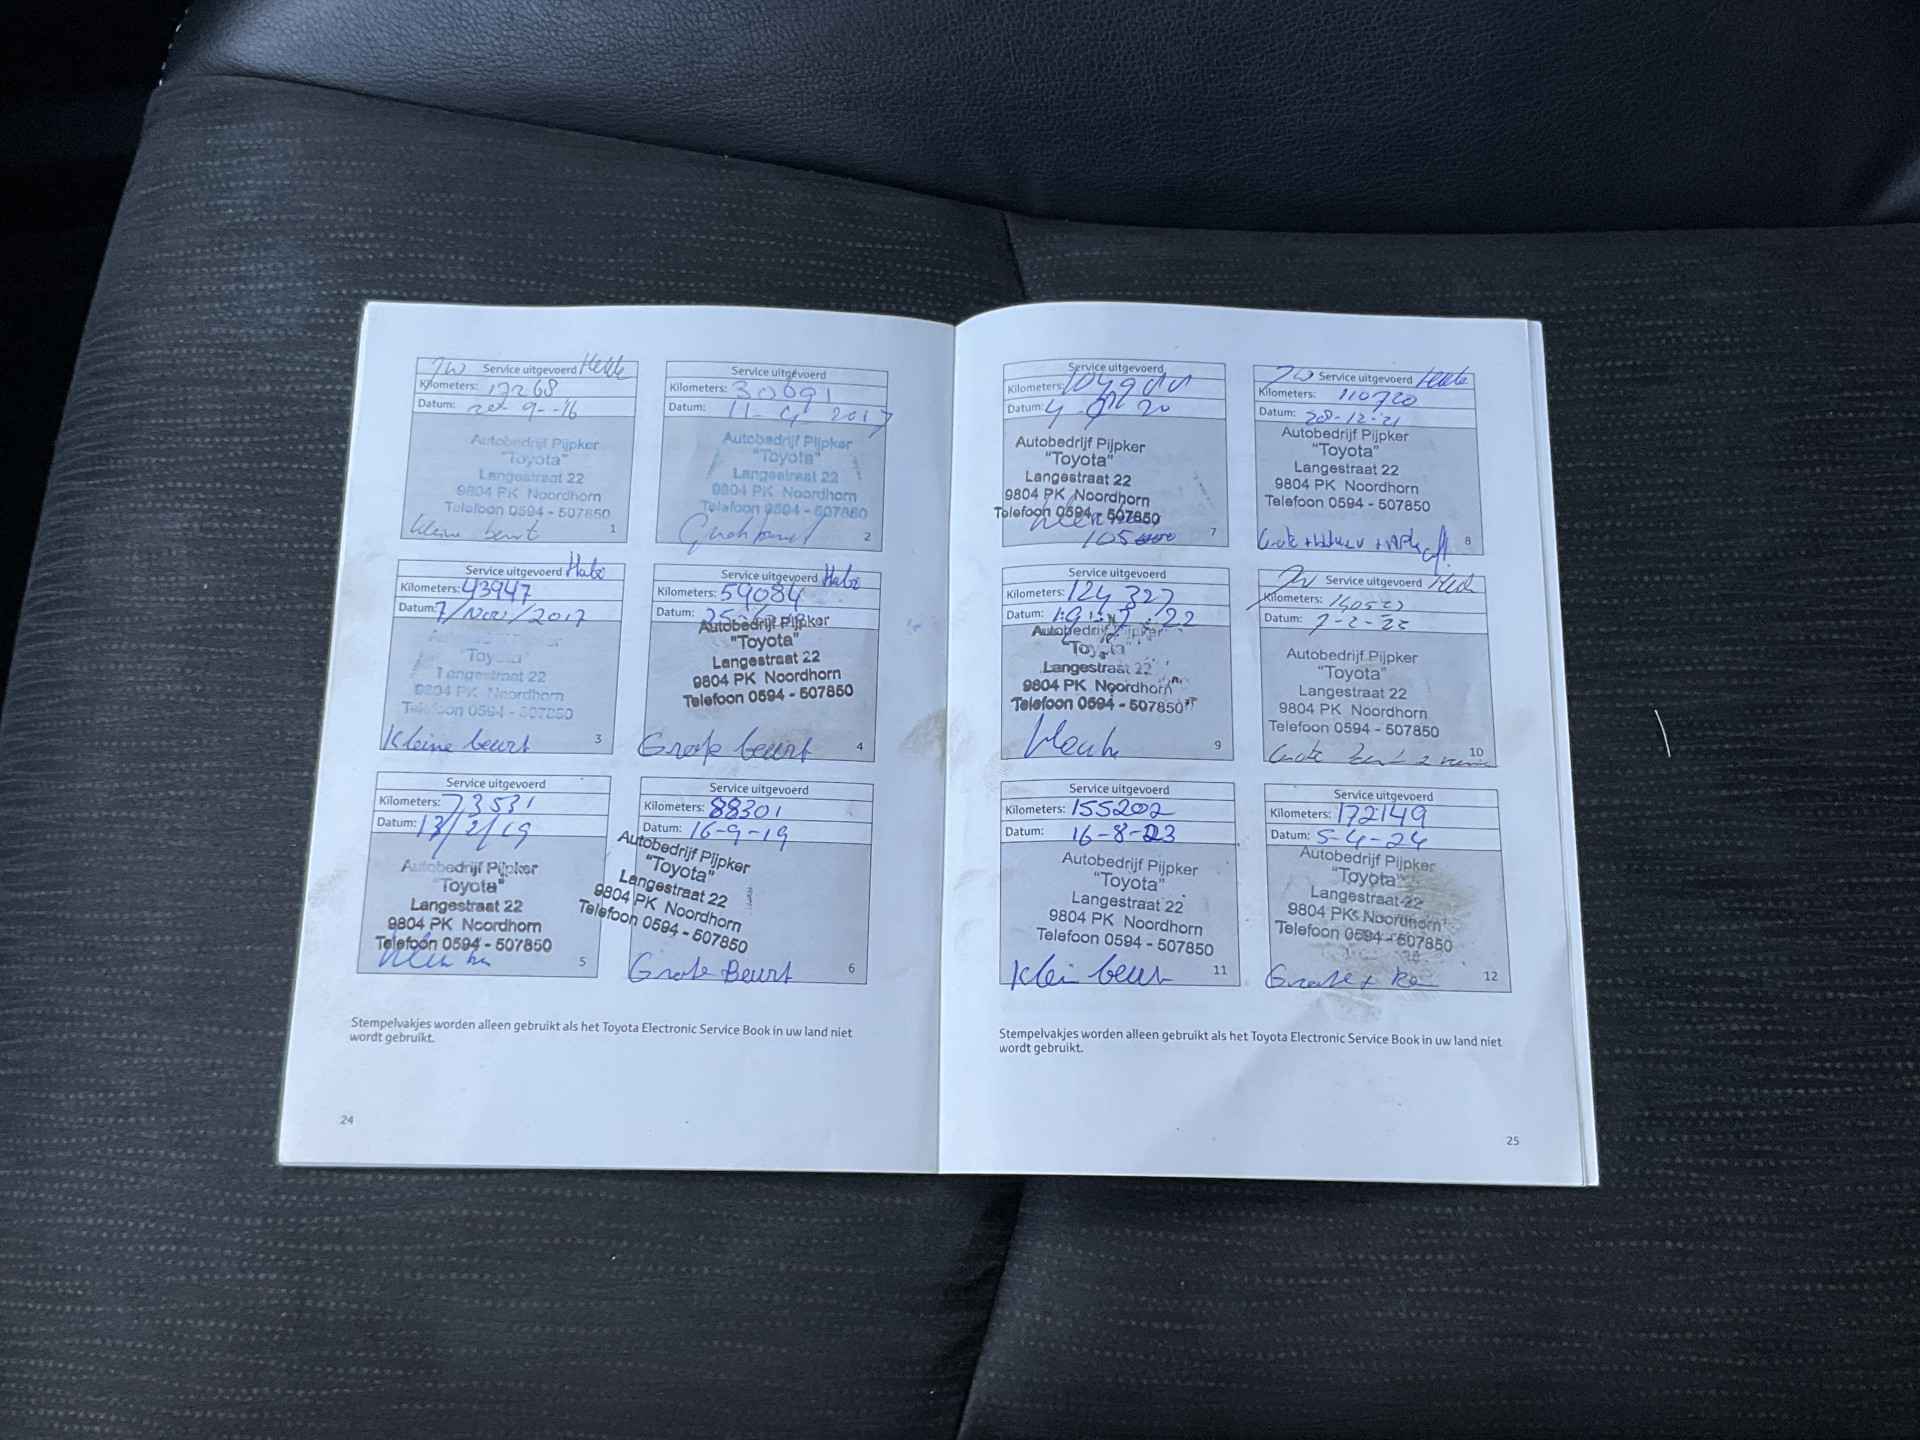 Service uitgevoerd
Kilometers: 17268
Datum: 9-16
Autobedrijf Pijpker
"Toyota"
Langestraat 22
9804 PK Noordhorn
Telefoon 0594 - 507850
kleine beurt
1
Service uitgevoerd
Kilometers: 30691
Datum: 11-4-2017
Autobedrijf Pijpker
"Toyota"
Langestraat 22
9804 PK Noordhorn
Telefoon 0594 - 507850
2
Service uitgevoerd
Kilometers: 43947
Datum: 7/Nov/2017
"Toyota"
Langestraat 22
9804 PK Noordhorn
Telefoon 0594 - 507850
Kleine beurt
3
Service uitgevoerd
Kilometers: 59084
Datum:
Autobedrijf Pijpker
"Toyota"
Langestraat 22
9804 PK Noordhorn
Telefoon 0594 - 507850
Grote beurt
4
Service uitgevoerd
Kilometers: 73531
Datum: 13/2/19
Autobedrijf Pijpker
"Toyota"
Langestraat 22
9804 PK Noordhorn
Telefoon 0594 - 507850
5
Service uitgevoerd
Kilometers: 88301
Datum: 16-9-19
Autobedrijf Pijpker
"Toyota"
Langestraat 22
9804 PK Noordhorn
Telefoon 0594 - 507850
Grote Beurt
6
Stempelvakjes worden alleen gebruikt als het Toyota Electronic Service Book in uw land niet
wordt gebruikt.
24
Service uitgevoerd
Kilometers:
Datum:
Autobedrijf Pijpker
"Toyota"
Langestraat 22
9804 PK Noordhorn
Telefoon 0594 - 507850
7
Service uitgevoerd
Kilometers: 110720
Datum: 28-12-21
Autobedrijf Pijpker
"Toyota"
Langestraat 22
9804 PK Noordhorn
Telefoon 0594 - 507850
8
Service uitgevoerd
Kilometers: 124327
Datum:
Autobedrijf Pijpker
"Toyota"
Langestraat 22
9804 PK Noordhorn
Telefoon 0594 - 507850
9
Service uitgevoerd
Kilometers:
Datum:
Autobedrijf Pijpker
"Toyota"
Langestraat 22
9804 PK Noordhorn
Telefoon 0594 - 507850
10
Service uitgevoerd
Kilometers: 155202
Datum: 16-8-23
Autobedrijf Pijpker
"Toyota"
Langestraat 22
9804 PK Noordhorn
Telefoon 0594 - 507850
Klein beurt
11
Service uitgevoerd
Kilometers: 172149
Datum: 5-4-24
Autobedrijf Pijpker
"Toyota"
Langestraat 22
9804 PK Noordhorn
Telefoon 0594 - 507850
12
Stempelvakjes worden alleen gebruikt als het Toyota Electronic Service Book in uw land niet
wordt gebruikt.
25